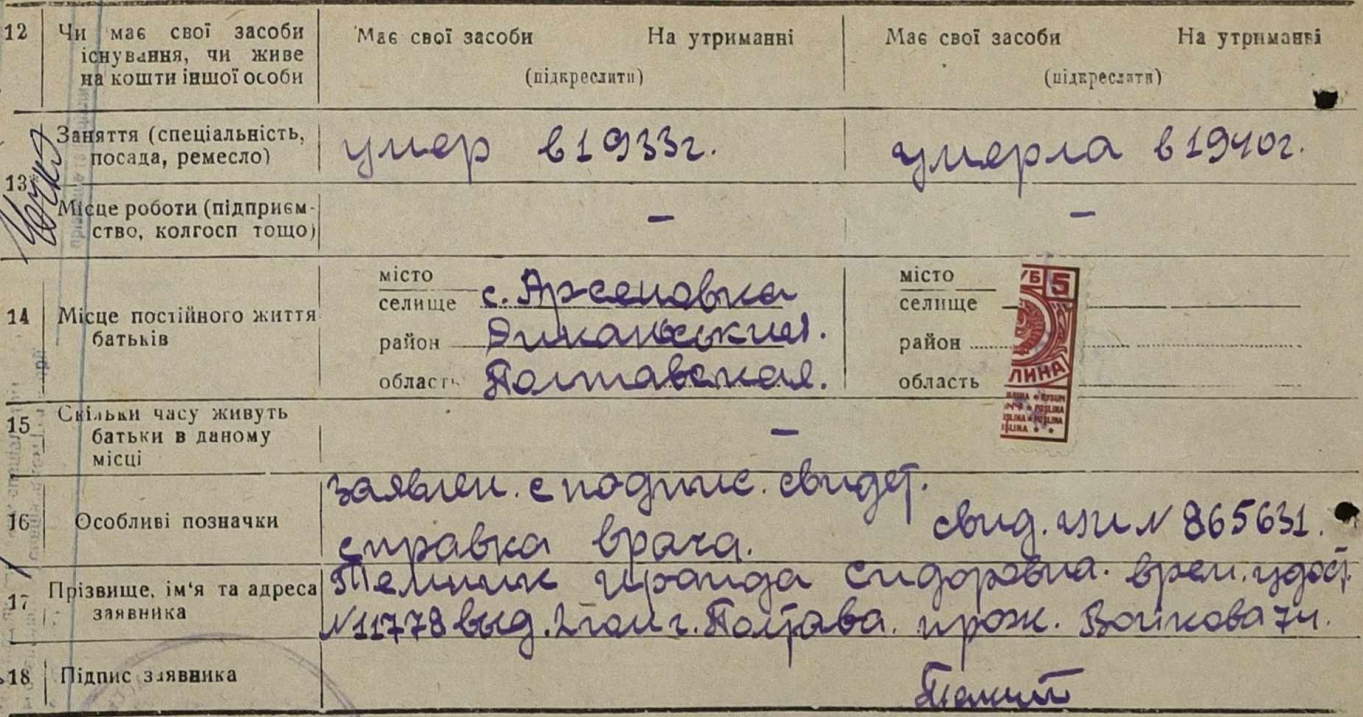 12 Чи має свої засоби існування, чи живе на кошти іншої особи
Має свої засоби На утриманні
(підкреслити)
Має свої засоби На утриманні
(підкреслити)
13 Заняття (спеціальність, посада, ремесло)
умер в 1933г.
умерла в 1940г.
Місце роботи (підприємство, колгосп тощо)
–
–
14 Місце постійного життя батьків
місто
селище с. Арсеновка
район Диканьский.
область Полтавская.
місто
селище
район
область
УБ 5
ЛИНА
15 Скільки часу живуть батьки в даному місці
–
16 Особливі позначки
заявлен. с подпис. свидет.
справка врача. свид. № 865631.
17 Прізвище, ім'я та адреса заявника
Сидоровна. врем. удост.
№ 11778 выд. г. Полтава. прож. Войкова
18 Підпис заявника